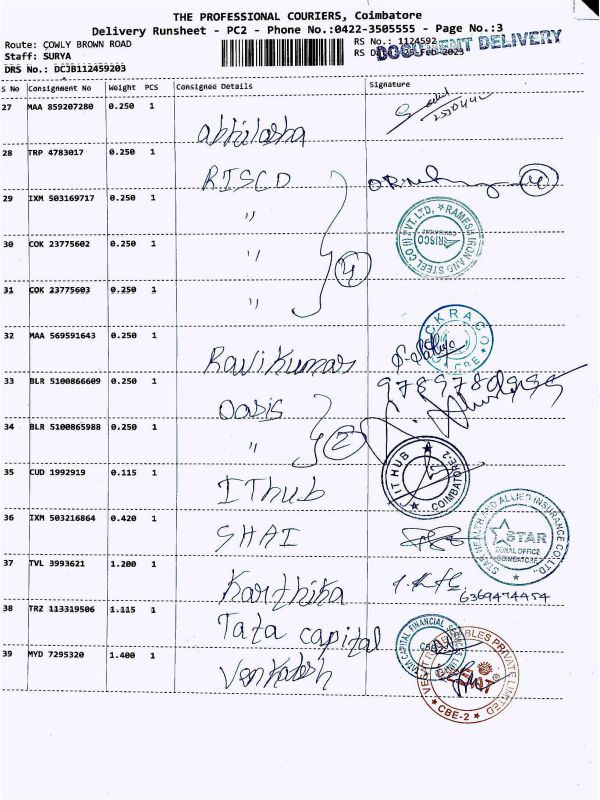 THE PROFESSIONAL COURIERS, Coimbatore
Delivery Runsheet - PC2 - Phone No.:0422-3505555 - Page No.:3
Route: COWLY BROWN ROAD
RS No.: 1124592
DOCUMENT DELIVERY
Staff: SURYA
DRS No.: DCJB112459203
S No Consignment No Weight PCS Consignee Details Signature
27 MAA 859207280 0.250 1 abhilasha
28 TRP 4783017 0.250 1 RISCO 4
29 IXM 503169717 0.250 1 "
RAMESH IRON AND STEEL CO (I) PVT. LTD,
RISCO
30 COK 23775602 0.250 1 " 4
31 COK 23775603 0.250 1 "
32 MAA 569591643 0.250 1 Ravikumar
CBE
33 BLR 5100866609 0.250 1 Oasis
34 BLR 5100865988 0.250 1 " 2
35 CUD 1992919 0.115 1 IThub
IT HUB COIMBATORE-2
36 IXM 503216864 0.420 1 SHAI
STAR HEALTH AND ALLIED INSURANCE CO. LTD.,
STAR
ZONAL OFFICE
COIMBATORE
37 TVL 3993621 1.200 1 Karthika
6369474454
38 TRZ 113319506 1.115 1 Tata capital
TATA CAPITAL FINANCIAL SERVICES LIMITED
39 MYD 7295320 1.400 1 Venkatesh
PRIVATE LIMITED
CBE-2